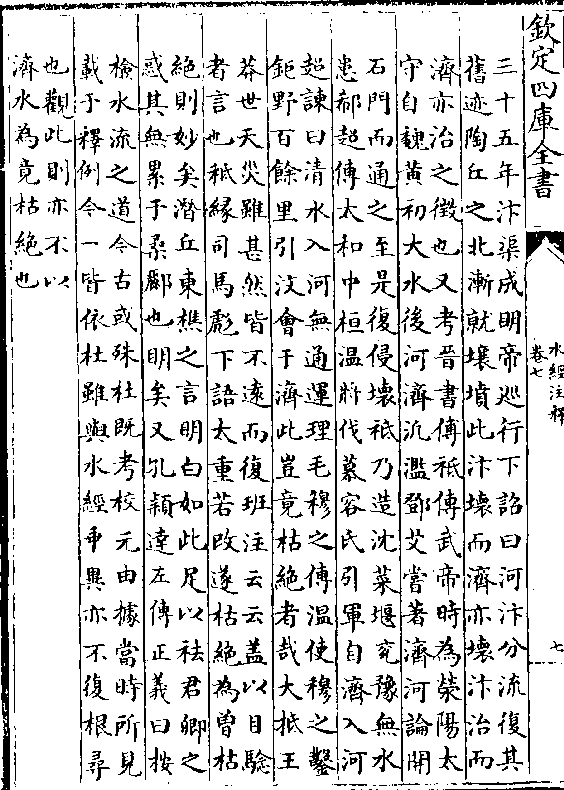 欽定四庫全書
水經注釋
卷七
七
三十五年汴渠成明帝巡行下詔曰河汴分流復其
舊迹陶丘之北漸就壤墳此汴壞而濟亦壞汴治而
濟亦治之徵也又考晉書傅祗傳武帝時為滎陽太
守自魏黄初大水後河濟汎濫鄧艾嘗著濟河論開
石門而通之至是復侵壞祗乃造沈菜堰兖豫無水
患郗超傳太和中桓温將伐慕容氏引軍自濟入河
超諫曰清水入河無通運理毛穆之傳温使穆之鑿
鉅野百餘里引汶會于濟此豈竟枯絶者哉大抵王
莽世天災雖甚然皆不遠而復班注云云盖以目騐
者言也秪縁司馬彪下語太重若改遂枯絶為曽枯
絶則妙矣潛丘東樵之言明白如此足以祛君卿之
惑其無累于桑酈也明矣又孔頴達左傳正義曰按
檢水流之道今古或殊杜既考校元由據當時所見
載于釋例今一皆依杜雖與水經乖異亦不復根尋
也觀此則亦不以
濟水為竟枯絶也